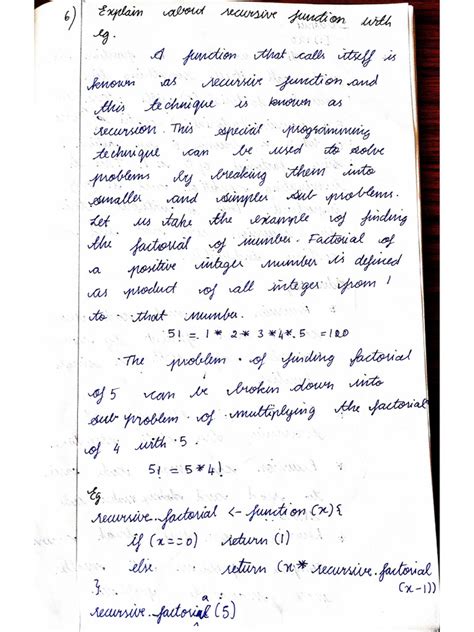 6) Explain about recursive function with
eg.
A function that calls itself is
known as recursive function and
this technique is known as
recursion. This special programming
technique can be used to solve
problems by breaking them into
smaller and simpler sub problems.
Let us take the example of finding
the factorial of number. Factorial of
a positive integer number is defined
as product of all integer from 1
to that number.
5! = 1 * 2 * 3 * 4 * 5 = 120
The problem of finding factorial
of 5 can be broken down into
sub problem of multiplying the factorial
of 4 with 5.
5! = 5 * 4!
Eg
recursive.factorial <- function (x) {
if (x == 0) return (1)
else return (x * recursive.factorial
(x-1))
}
recursive.factorial (5)